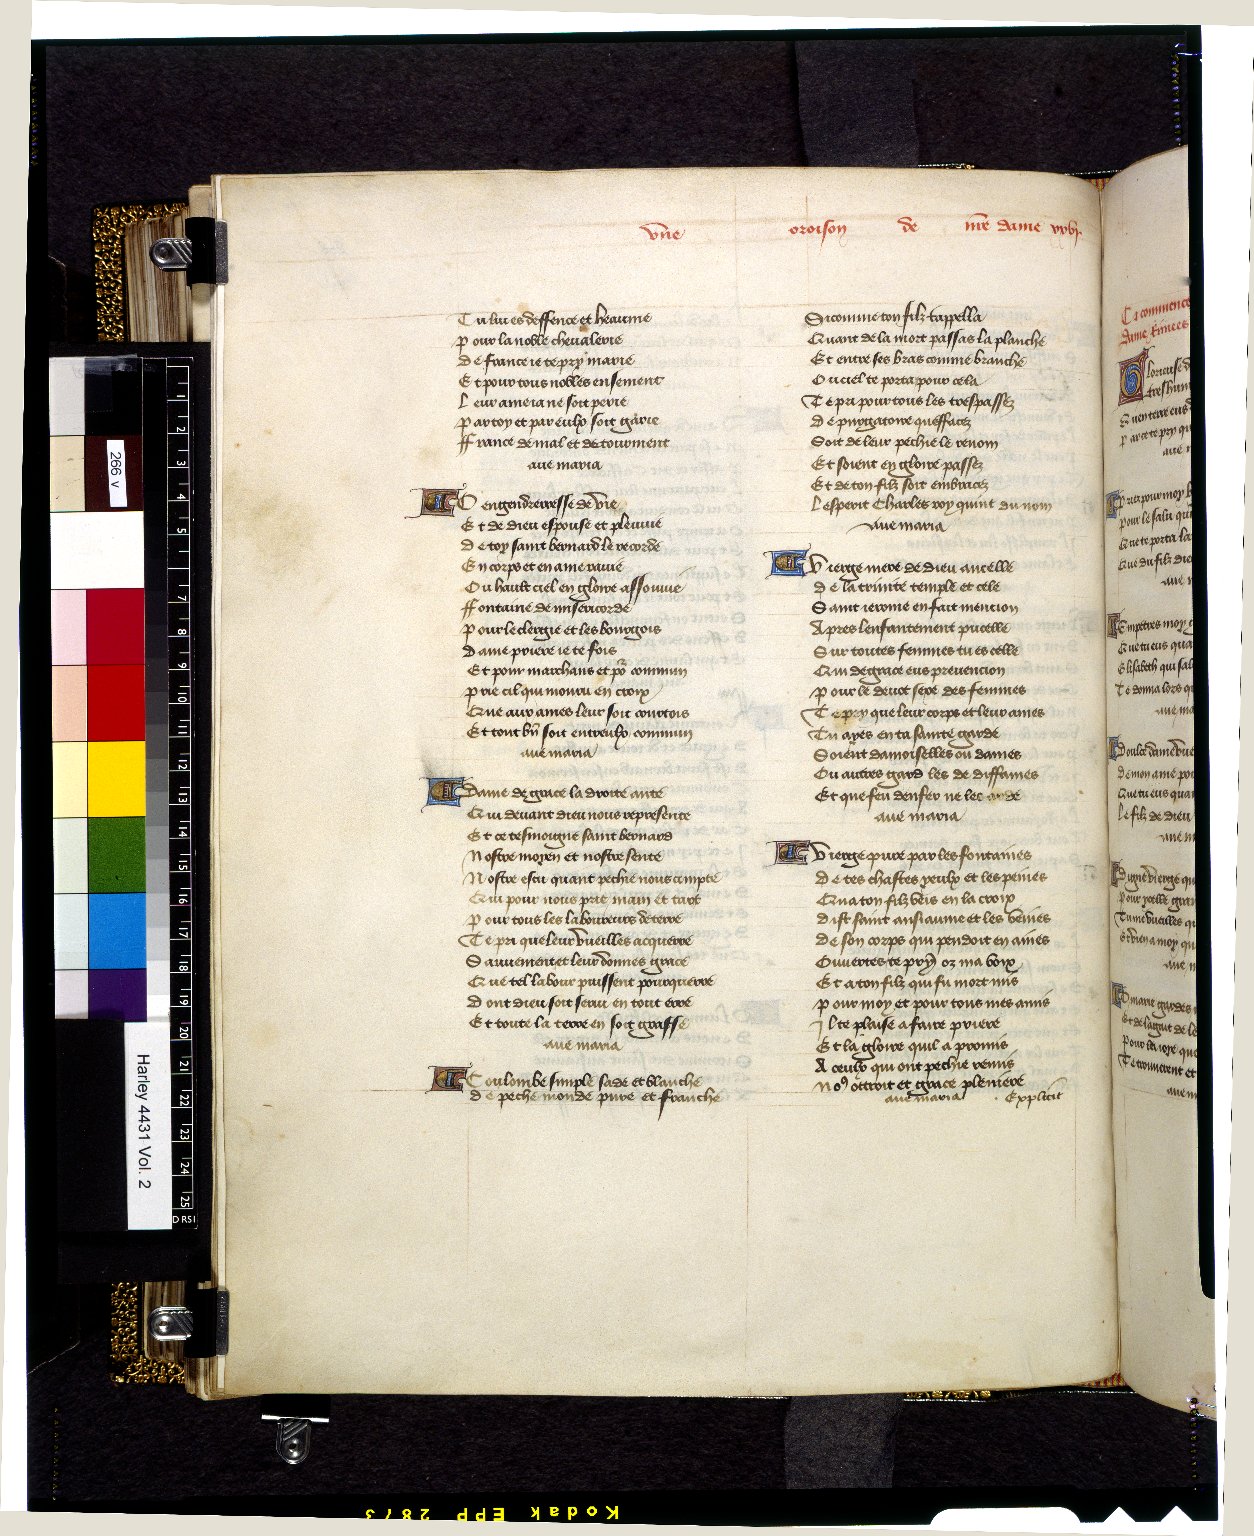 vne oroison de nre dame xxvj.
Tu lui es deffence et heaume
Pour la noble cheualerie
De france ie te pry marie
Et pour tous nobles ensement
Leur ame ia ne soit perie
Par toy et par eulx soit garie
ffrance de mal et de tourment
aue maria
O engendreresse de vie
Et de dieu espouse et pleuuie
De toy saint bernard le recorde
En corps et en ame rauie
Ou hault ciel en gloire assouuie
ffontaine de misericorde
Pour le clergie et les bourgois
Dame priere ie te fois
Et pour marchans et por commun
Prie cil qui mouru en croix
Que aux ames leur soit courtois
Et tout bn soit entreulx commun
aue maria
Dame de grace la droite ante
Qui deuant dieu nous represente
Et ce tesmoigne saint bernard
Nostre moyen et nostre sente
Nostre escu quant pechie nous tempte
Qui pour nous prie main et tart
Pour tous les laboureurs de terre
Te pri que leur vueilles acquerre
Sauuement et leur donnes grace
Que tel labour puissent pourquerre
Dont dieu soit serui en tout erre
Et toute la terre en soit grasse
aue maria
Coulombe simple sade et blanche
De pechie monde pure et franche
Si comme ton filz tappella
Quant de la mort passas la planche
Et entre ses bras comme branche
Ou ciel te porta pour cela
Te pri pour tous les trespassez
De purgatoire queffacez
Soit de leur pechie le renom
Et soient en gloire passez
Et de ton filz soit embracez
Lesperit Charles roy quint du nom
aue maria
Vierge mere de dieu ancelle
De la trinite temple et celle
Saint ierome en fait mencion
Apres lenfantement pucelle
Sur toutes femmes tu es celle
Qui de grace eus preuencion
Pour le deuot sexe des femmes
Te pry que leur corps et leur ames
Tu ayes en ta sainte garde
Soient damoiselles ou dames
Ou autres gard les de diffames
Et que feu denfer ne les arde
aue maria
Vierge pure par les fontaines
De tes chastes yeulx et les peines
Qua ton filz veis en la croix
Dist saint anssiaume et les veines
De son corps qui pendoit en aines
Ouuertes te pry oz ma voix
Et a ton filz qui fu mort mis
Pour moy et pour tous mes amis
Il te plaise a faire priere
Et la gloire quil a promis
A ceulx qui ont pechie remis
No9 ottroit et grace pleniere
aue maria . Explicit
Cy commence
dame rimees
aue m
266 v
1 2 3 4 5 6 7 8 9 10 11 12 13 14 15 16 17 18 19 20 21 22 23 24 25
Harley 4431 Vol. 2
Kodak EPP 2873